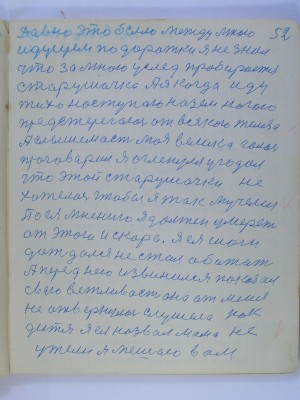 Давно это было между мною 52
идущем по дорожки я не знал
что за мною услед пробирается
старушачка А я когда иду
тихо наступаю на зем ногою
предстерегался от всякого тела
А слышемаст моя велика галас
проговарил я огленулся угодал
что этой старушачки не
хотелось чтобся я так мучелся
По ея мнению я должен умереть
от этого и скора. Я ея слоги
дождался не стал обажать
А перед нею извенился показал
сваю ветливаст она от меня
не отвернулась слушела как
дитя я ея назвал мама не
ужели я мешаю вам